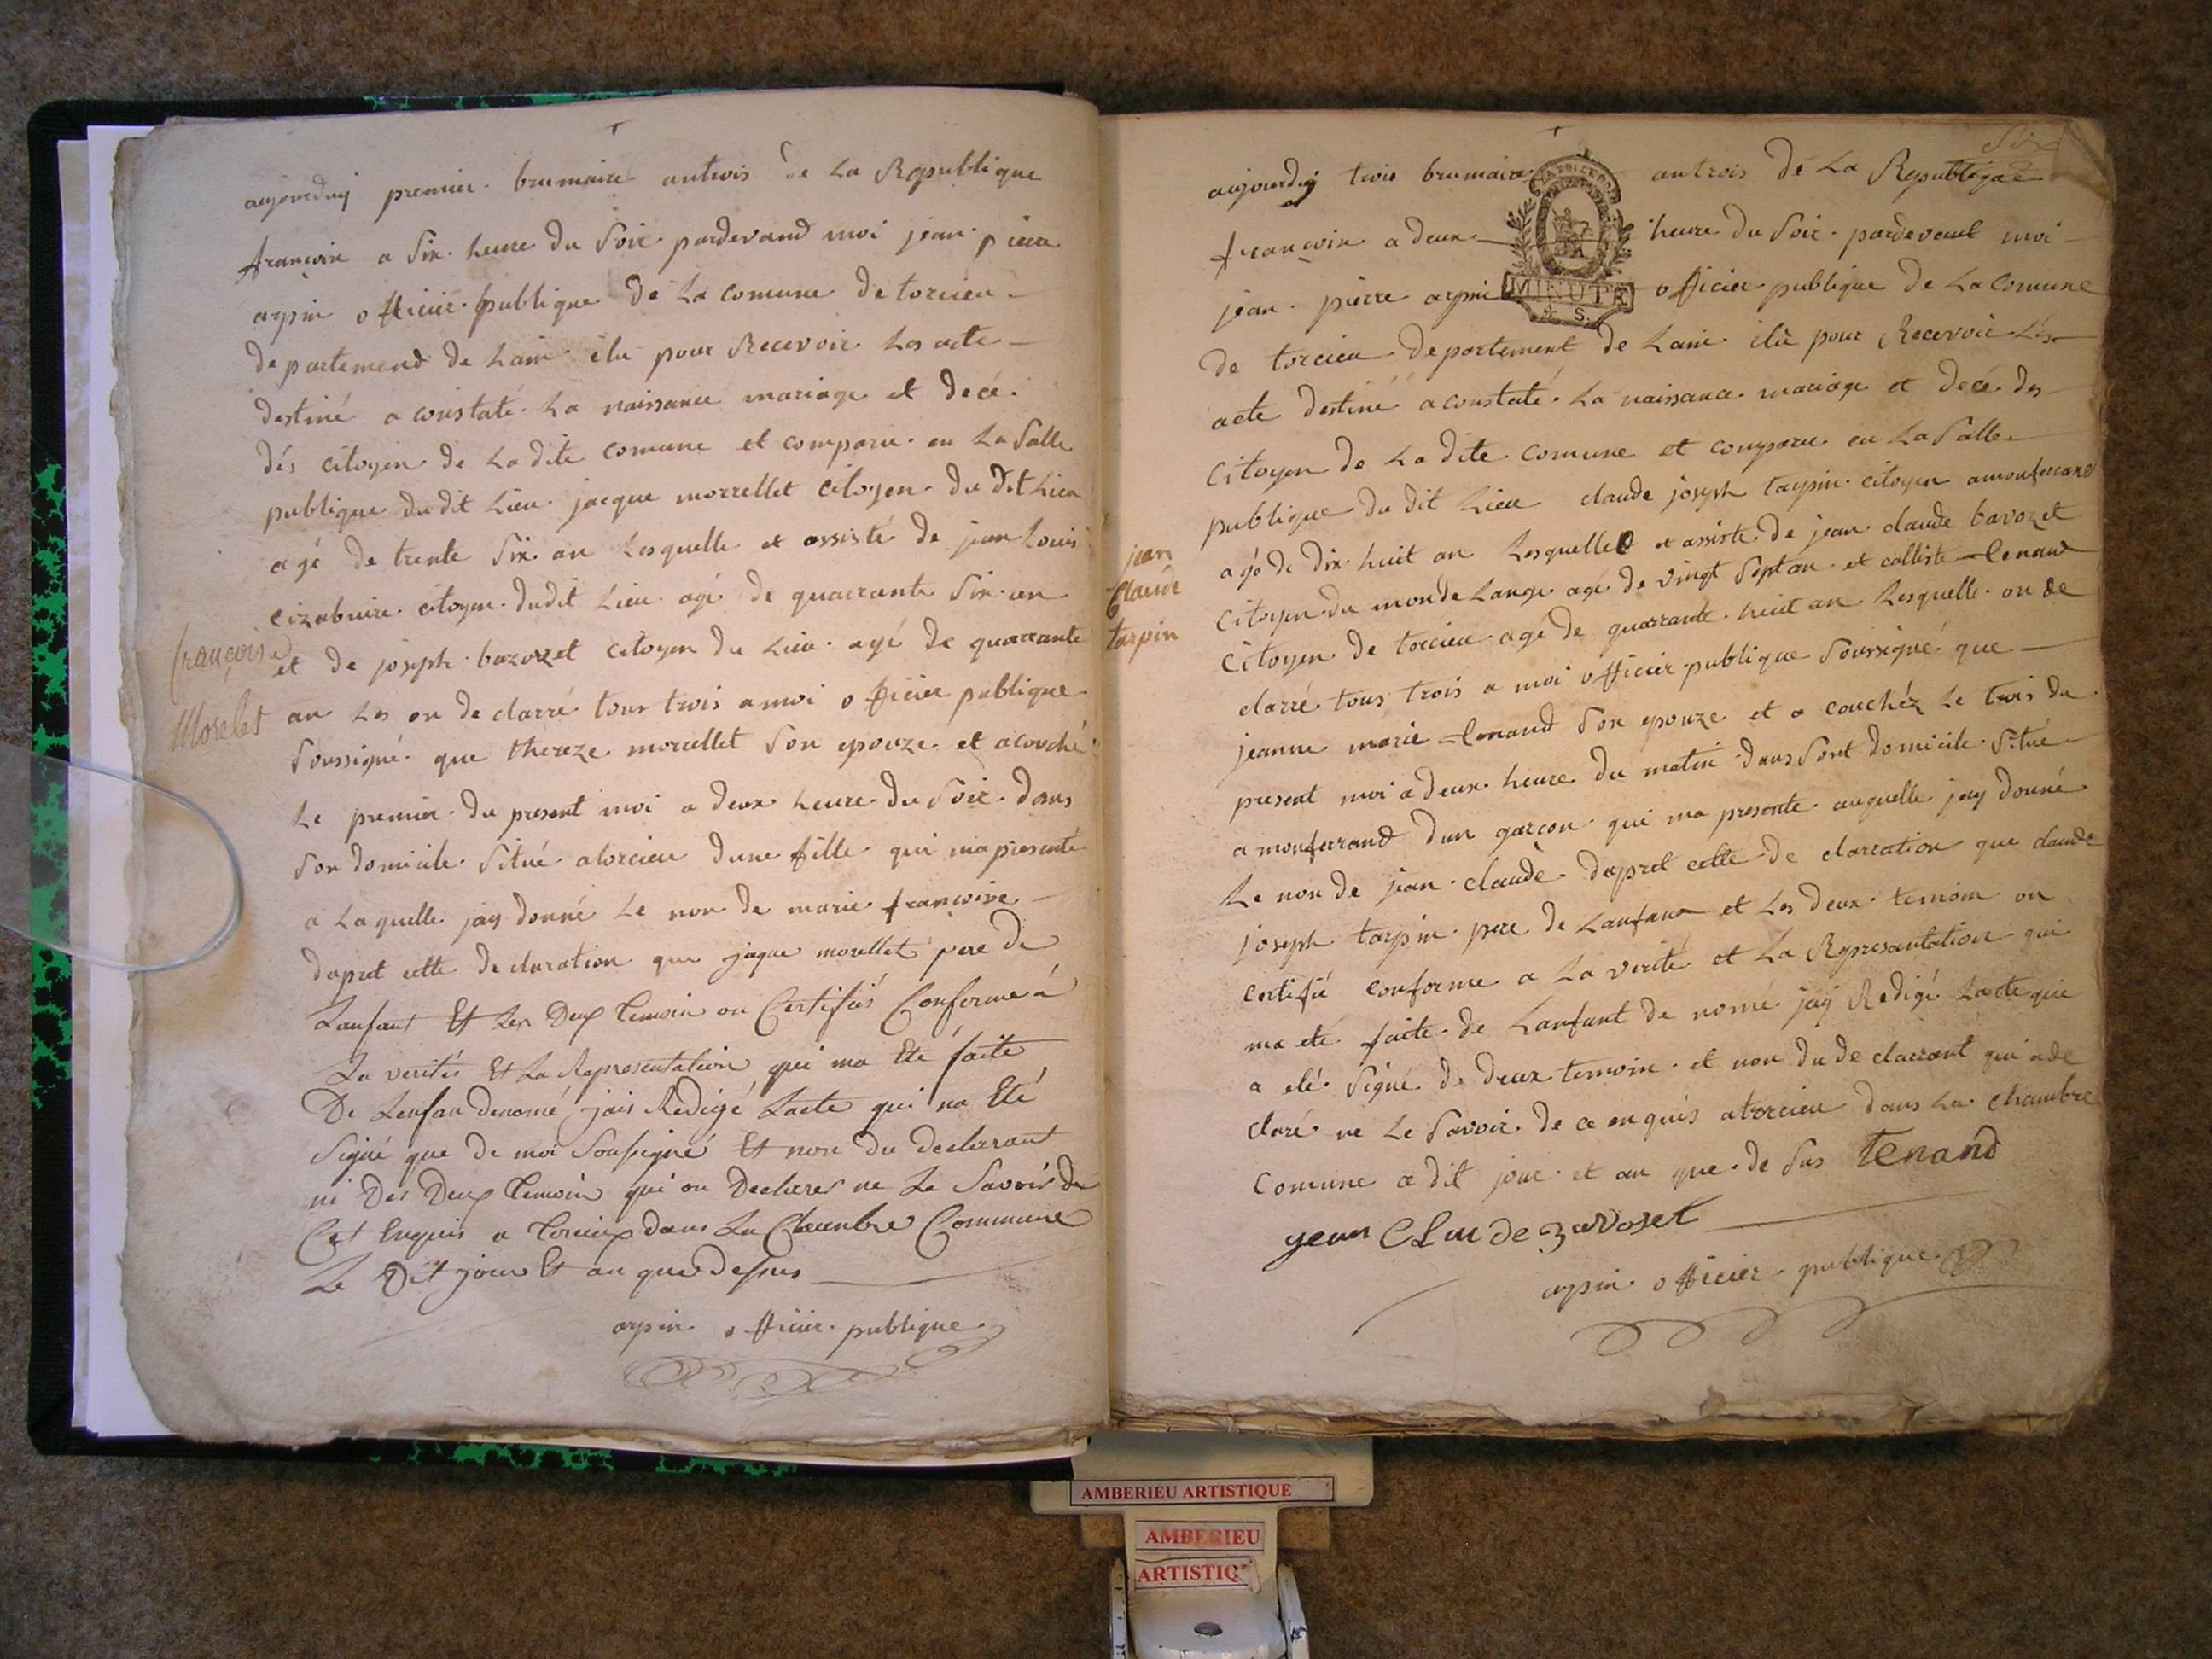 aujourduy premier brumaire antrois de La Republique
françoise a Six heure du Soir pardevand moi jean pierre
arpin officier publique de La comune de torcieu
departemend de Lain élu pour Recevoir Les acte
destiné a constaté La naissance mariage et decé
dés citoyen de Ladite comune et comparu en La Salle
publique dudit Lieu jacque morrellet citoyen du dit Lieu
agé de trente Six an Lesquelle et assisté de jean Louis
citoyen dudit Lieu agé de quarrante Six an
et de joseph bavozet citoyen du Lieu agé de quarrante
an Les on declarré tous trois a moi officier publique
Soussigné que thereze morcellet Son epouze et acouché
Le premier du present moi a deux heure du Soir dans
Son domicile Situé atorcieu dune fille qui ma presenté
a Laquelle jay donné Le non de marie françoise
dapret cette declaration que jaque morellet pere de
Lanfant Et Les Deux temoin on Certifiés Conforme á
La verités Et La Representation qui ma Eté faite
De Lenfan denomé jais Redigé Lacte qui na Eté
Signé que de moi Soussigné Et non du declarant
ni Des Deux temoin qui on Declarer ne Le Savoir de
Cet Enquis a torcieux dans La Chambre Commune
Le Dit jour Et an que dessus
arpin officier publique
françoise
Morelet
Six
aujourduy trois brumaire antrois de La Republique
françoise a deux heure du Soir pardevant moi
jean pierre arpin officier publique de La Comune
MINUTE
S.
de torcieu departement de Lain élu pour Recevoir Les
acte destiné a constaté La naissance mariage et decé des
Citoyen de Ladite comune et comparu en La Salle
publique du dit Lieu claude joseph tarpin citoyen amonferrand
agé de dix huit an Lesquelle et assiste de jean claude bavozet
Citoyen du monde Lange agé de vingt Sept an et calliste tenand
Citoyen de torcieu agé de quarrante huit an Lesquelle on de
clarré tous trois a moi officier publique Soussigné que
jeanne marie tenand Son epouze et a couchéz Le trois du
present moi a deux heure du matin dans Sont domicile Situé
a monferrand dun garçon qui ma presente auquelle jay donné
Le non de jean claude dapret cette declarration que claude
joseph tarpin pere de Lanfant et Les deux temoin on
certifié conforme a La verité et La Representation qui
ma eté faite de Lanfant de nomé jay Redigé Lacte qui
a eté Signé de deux temoin et non du declarrant qui a de
claré ne Le Savoir de ce enquis atorcieu dans La chambre
Comune a dit jour et an que de Sus tenand
jean Claude bavoset
arpin officier publique
jean
Claude
tarpin
AMBERIEU ARTISTIQUE
AMBERIEU
ARTISTIQ